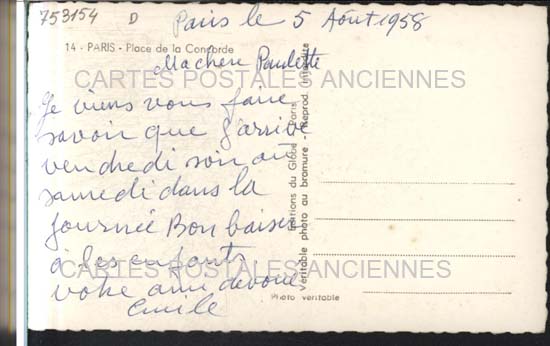 753154 D Paris le 5 Août 1958
14 - PARIS - Place de la Concorde
Machère Paulette
CARTES POSTALES ANCIENNES
Je viens vous faire
savoir que j'arrive
vendredi soir ou
samedi dans la
journée Bon baiser
à les enfants
CARTES POSTALES ANCIENNES
votre ami dévoué
Emile
Editions du Globe - Paris
Véritable photo au bromure - Reprod. interdite
Photo véritable